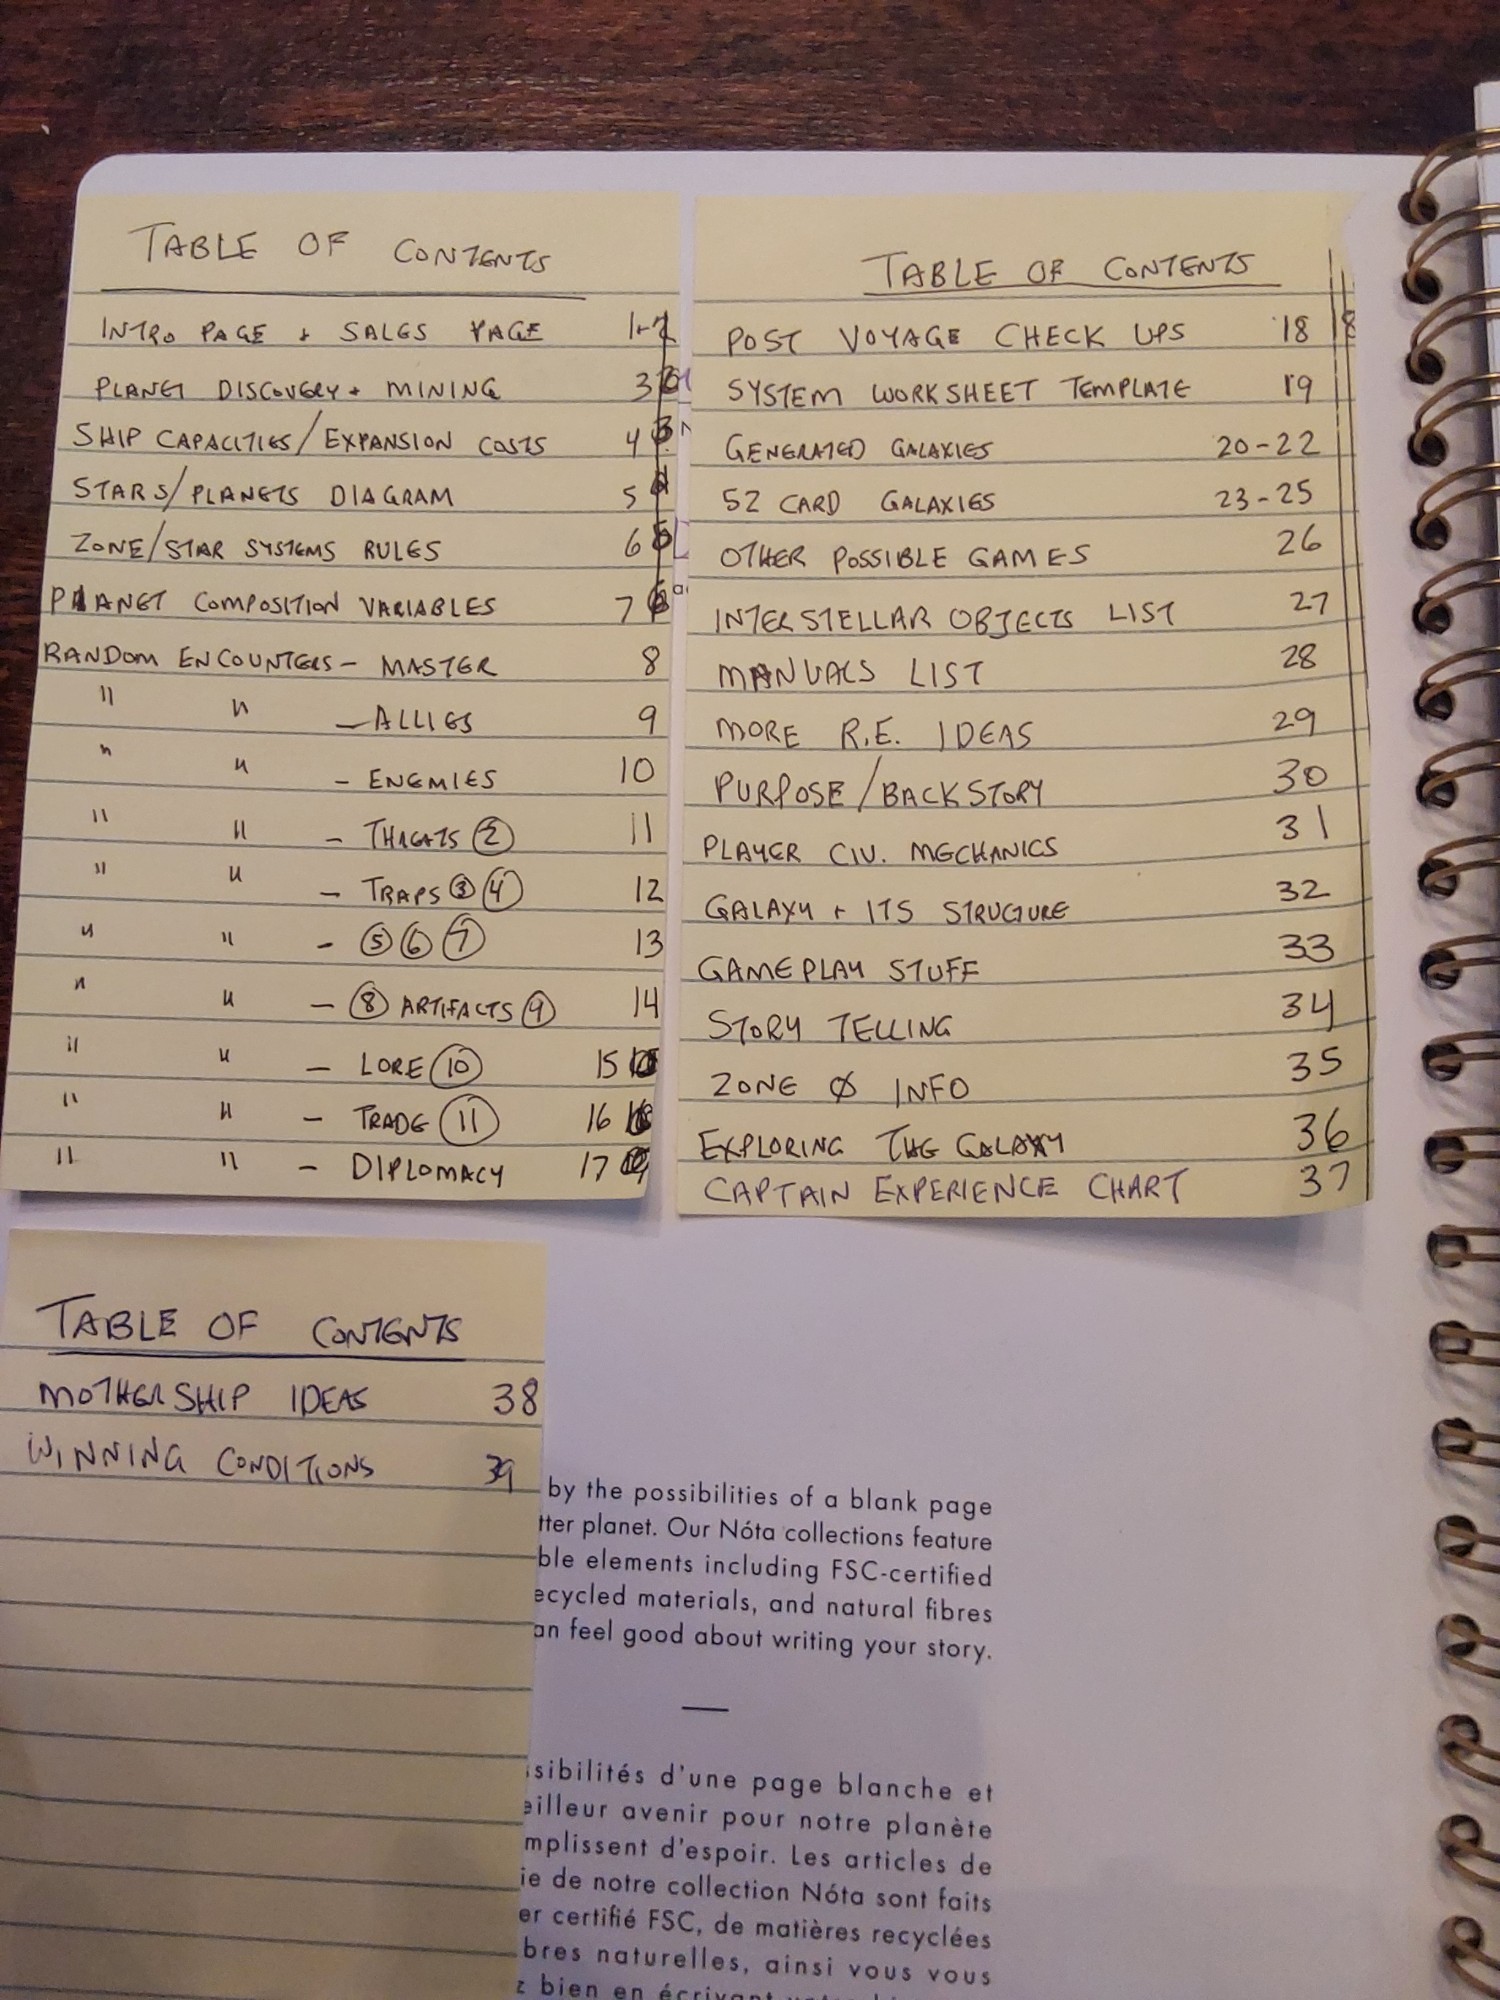 TABLE OF CONTENTS
INTRO PAGE + SALES PAGE 1-2
PLANET DISCOVERY + MINING 3
SHIP CAPACITIES/EXPANSION COSTS 4
STARS/PLANETS DIAGRAM 5
ZONE/STAR SYSTEMS RULES 6
PLANET COMPOSITION VARIABLES 7
RANDOM ENCOUNTERS - MASTER 8
" " - ALLIES 9
" " - ENEMIES 10
" " - THREATS ② 11
" " - TRAPS ③ ④ 12
" " - ⑤ ⑥ ⑦ 13
" " - ⑧ ARTIFACTS ⑨ 14
" " - LORE ⑩ 15
" " - TRADE ⑪ 16
" " - DIPLOMACY 17
TABLE OF CONTENTS
POST VOYAGE CHECK UPS 18 18
SYSTEM WORKSHEET TEMPLATE 19
GENERATED GALAXIES 20-22
52 CARD GALAXIES 23-25
OTHER POSSIBLE GAMES 26
INTERSTELLAR OBJECTS LIST 27
MANUALS LIST 28
MORE R.E. IDEAS 29
PURPOSE/BACKSTORY 30
PLAYER CIV. MECHANICS 31
GALAXY + ITS STRUCTURE 32
GAMEPLAY STUFF 33
STORY TELLING 34
ZONE Ø INFO 35
EXPLORING THE GALAXY 36
CAPTAIN EXPERIENCE CHART 37
TABLE OF CONTENTS
MOTHERSHIP IDEAS 38
WINNING CONDITIONS 39
by the possibilities of a blank page
tter planet. Our Nóta collections feature
ble elements including FSC-certified
ecycled materials, and natural fibres
an feel good about writing your story.
sibilités d'une page blanche et
eilleur avenir pour notre planète
mplissent d'espoir. Les articles de
ie de notre collection Nóta sont faits
er certifié FSC, de matières recyclées
bres naturelles, ainsi vous vous
z bien en écrivant